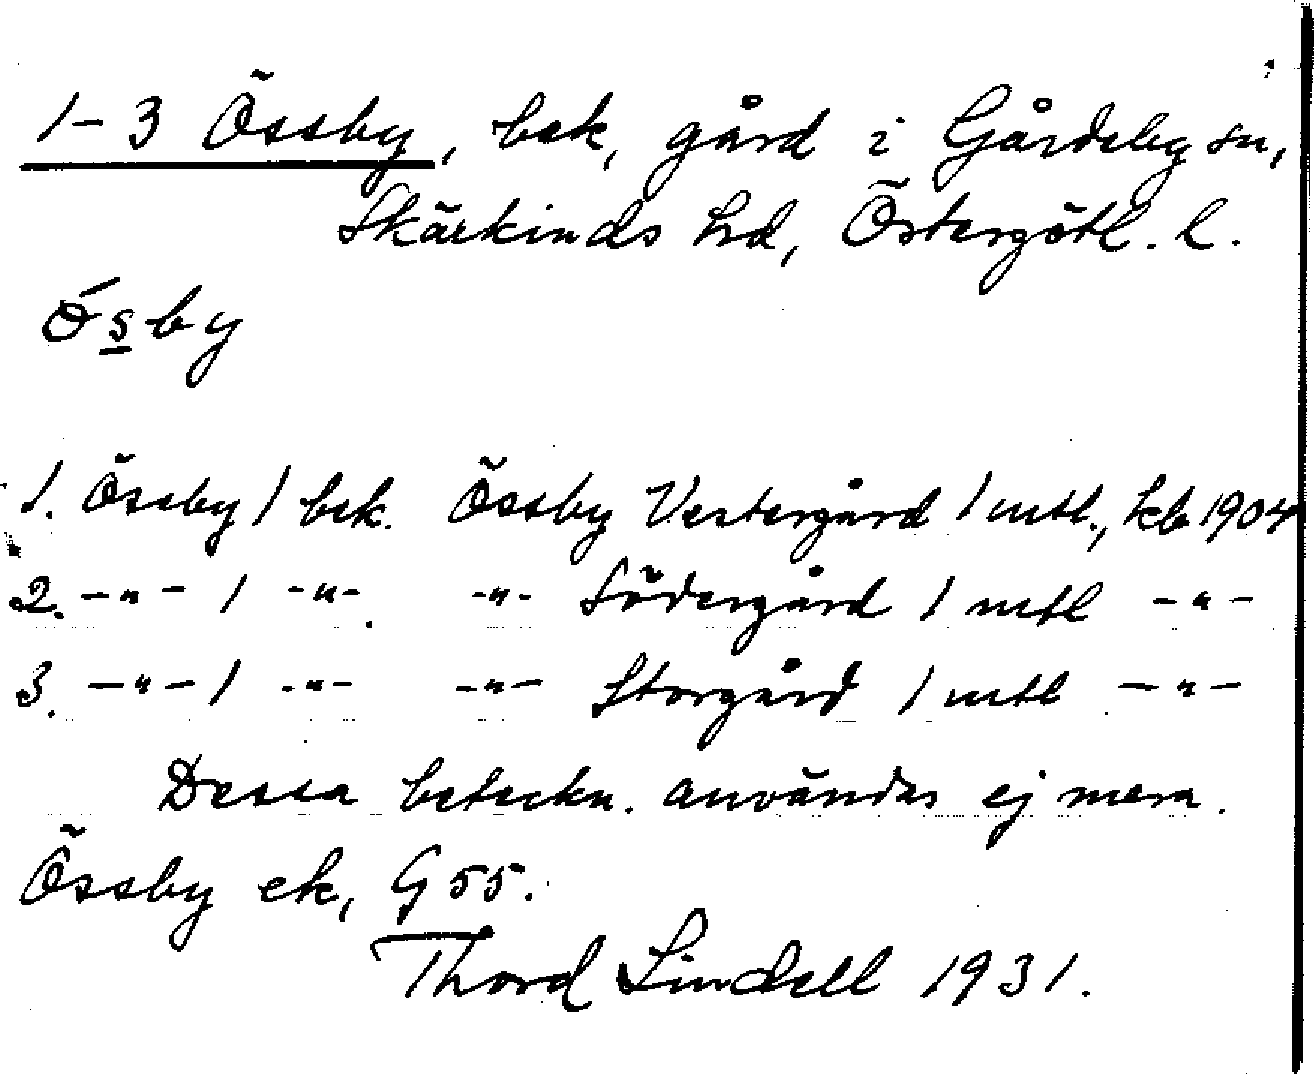 1-3 Össby, bek, gård i Gårdeby sn,
Skärkinds hd, Östergötl. l.
ǿsby
1. Össby 1 bek. Össby Vestergård 1 mtl., kb 1904
2. -"- 1 -"-. -"- Södergård 1 mtl -"-
3. -"- 1 -"- -"- Storgård 1 mtl -"-
Dessa beteckn. användas ej mera.
Össby ek, G 55.
Thord Lindell 1931.